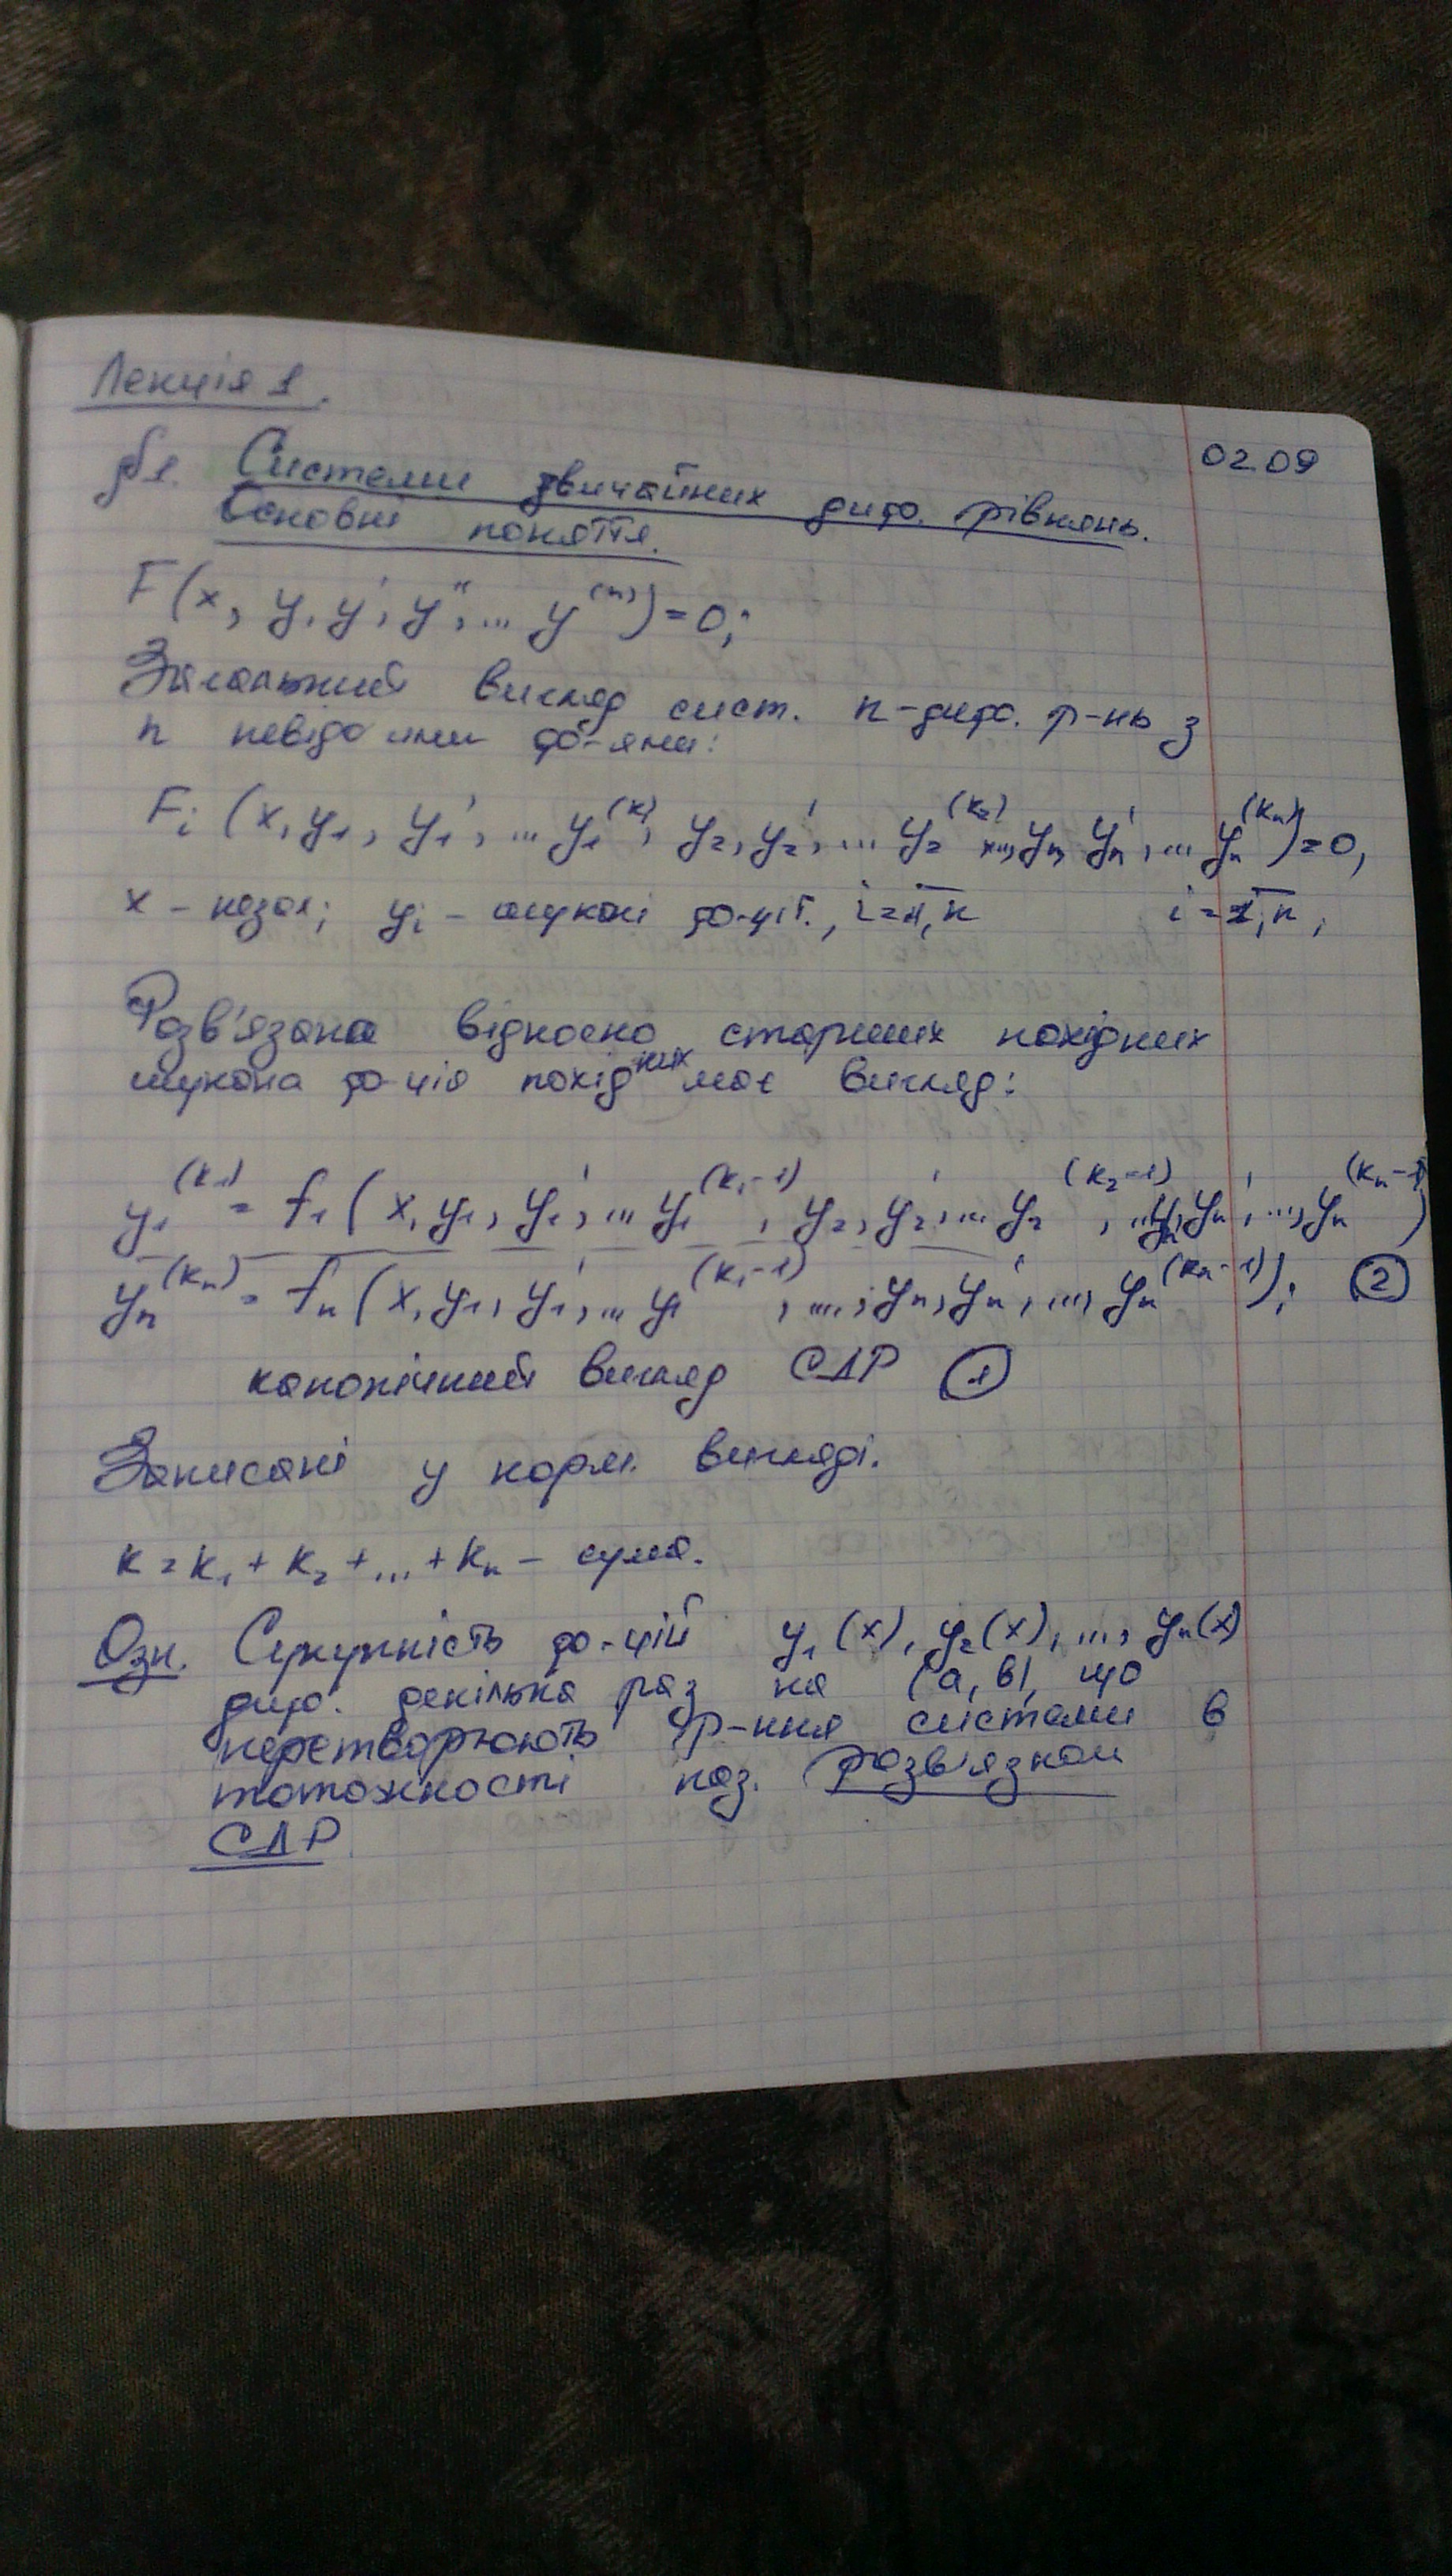 Лекція 1.
02.09
§1. Системи звичайних диф. рівнянь.
Основні поняття.
F(x, y, y', y'', ... y⁽ⁿ⁾) = 0;
Загальний вигляд сист. n-диф. р-нь з
n невідомими ф-ями:
Fᵢ (x, y₁, y₁', ... y₁^(k₁), y₂, y₂', ... y₂^(k₂), ..., yₙ, yₙ', ... yₙ^(kₙ)) = 0,
x - незал; yᵢ - шукані ф-ції, i = 1,n i = 1,n,
Розв'язана відносно старших похідних
шукана ф-ція похідних має вигляд:
y₁^(k₁) = f₁ (x, y₁, y₁', ... y₁^(k₁-1), y₂, y₂', ... y₂^(k₂-1), ... yₙ, yₙ', ..., yₙ^(kₙ-1))
yₙ^(kₙ) = fₙ (x, y₁, y₁', ... y₁^(k₁-1), ..., yₙ, yₙ', ..., yₙ^(kₙ-1)); ②
канонічний вигляд СДР ①
Записані у норм. вигляді.
k = k₁ + k₂ + ... + kₙ - сума.
Озн. Сукупність ф-цій y₁(x), y₂(x), ..., yₙ(x)
диф. декілька раз на (a, b), що
перетворюють р-ння системи в
тотожності наз. розв'язком
СДР